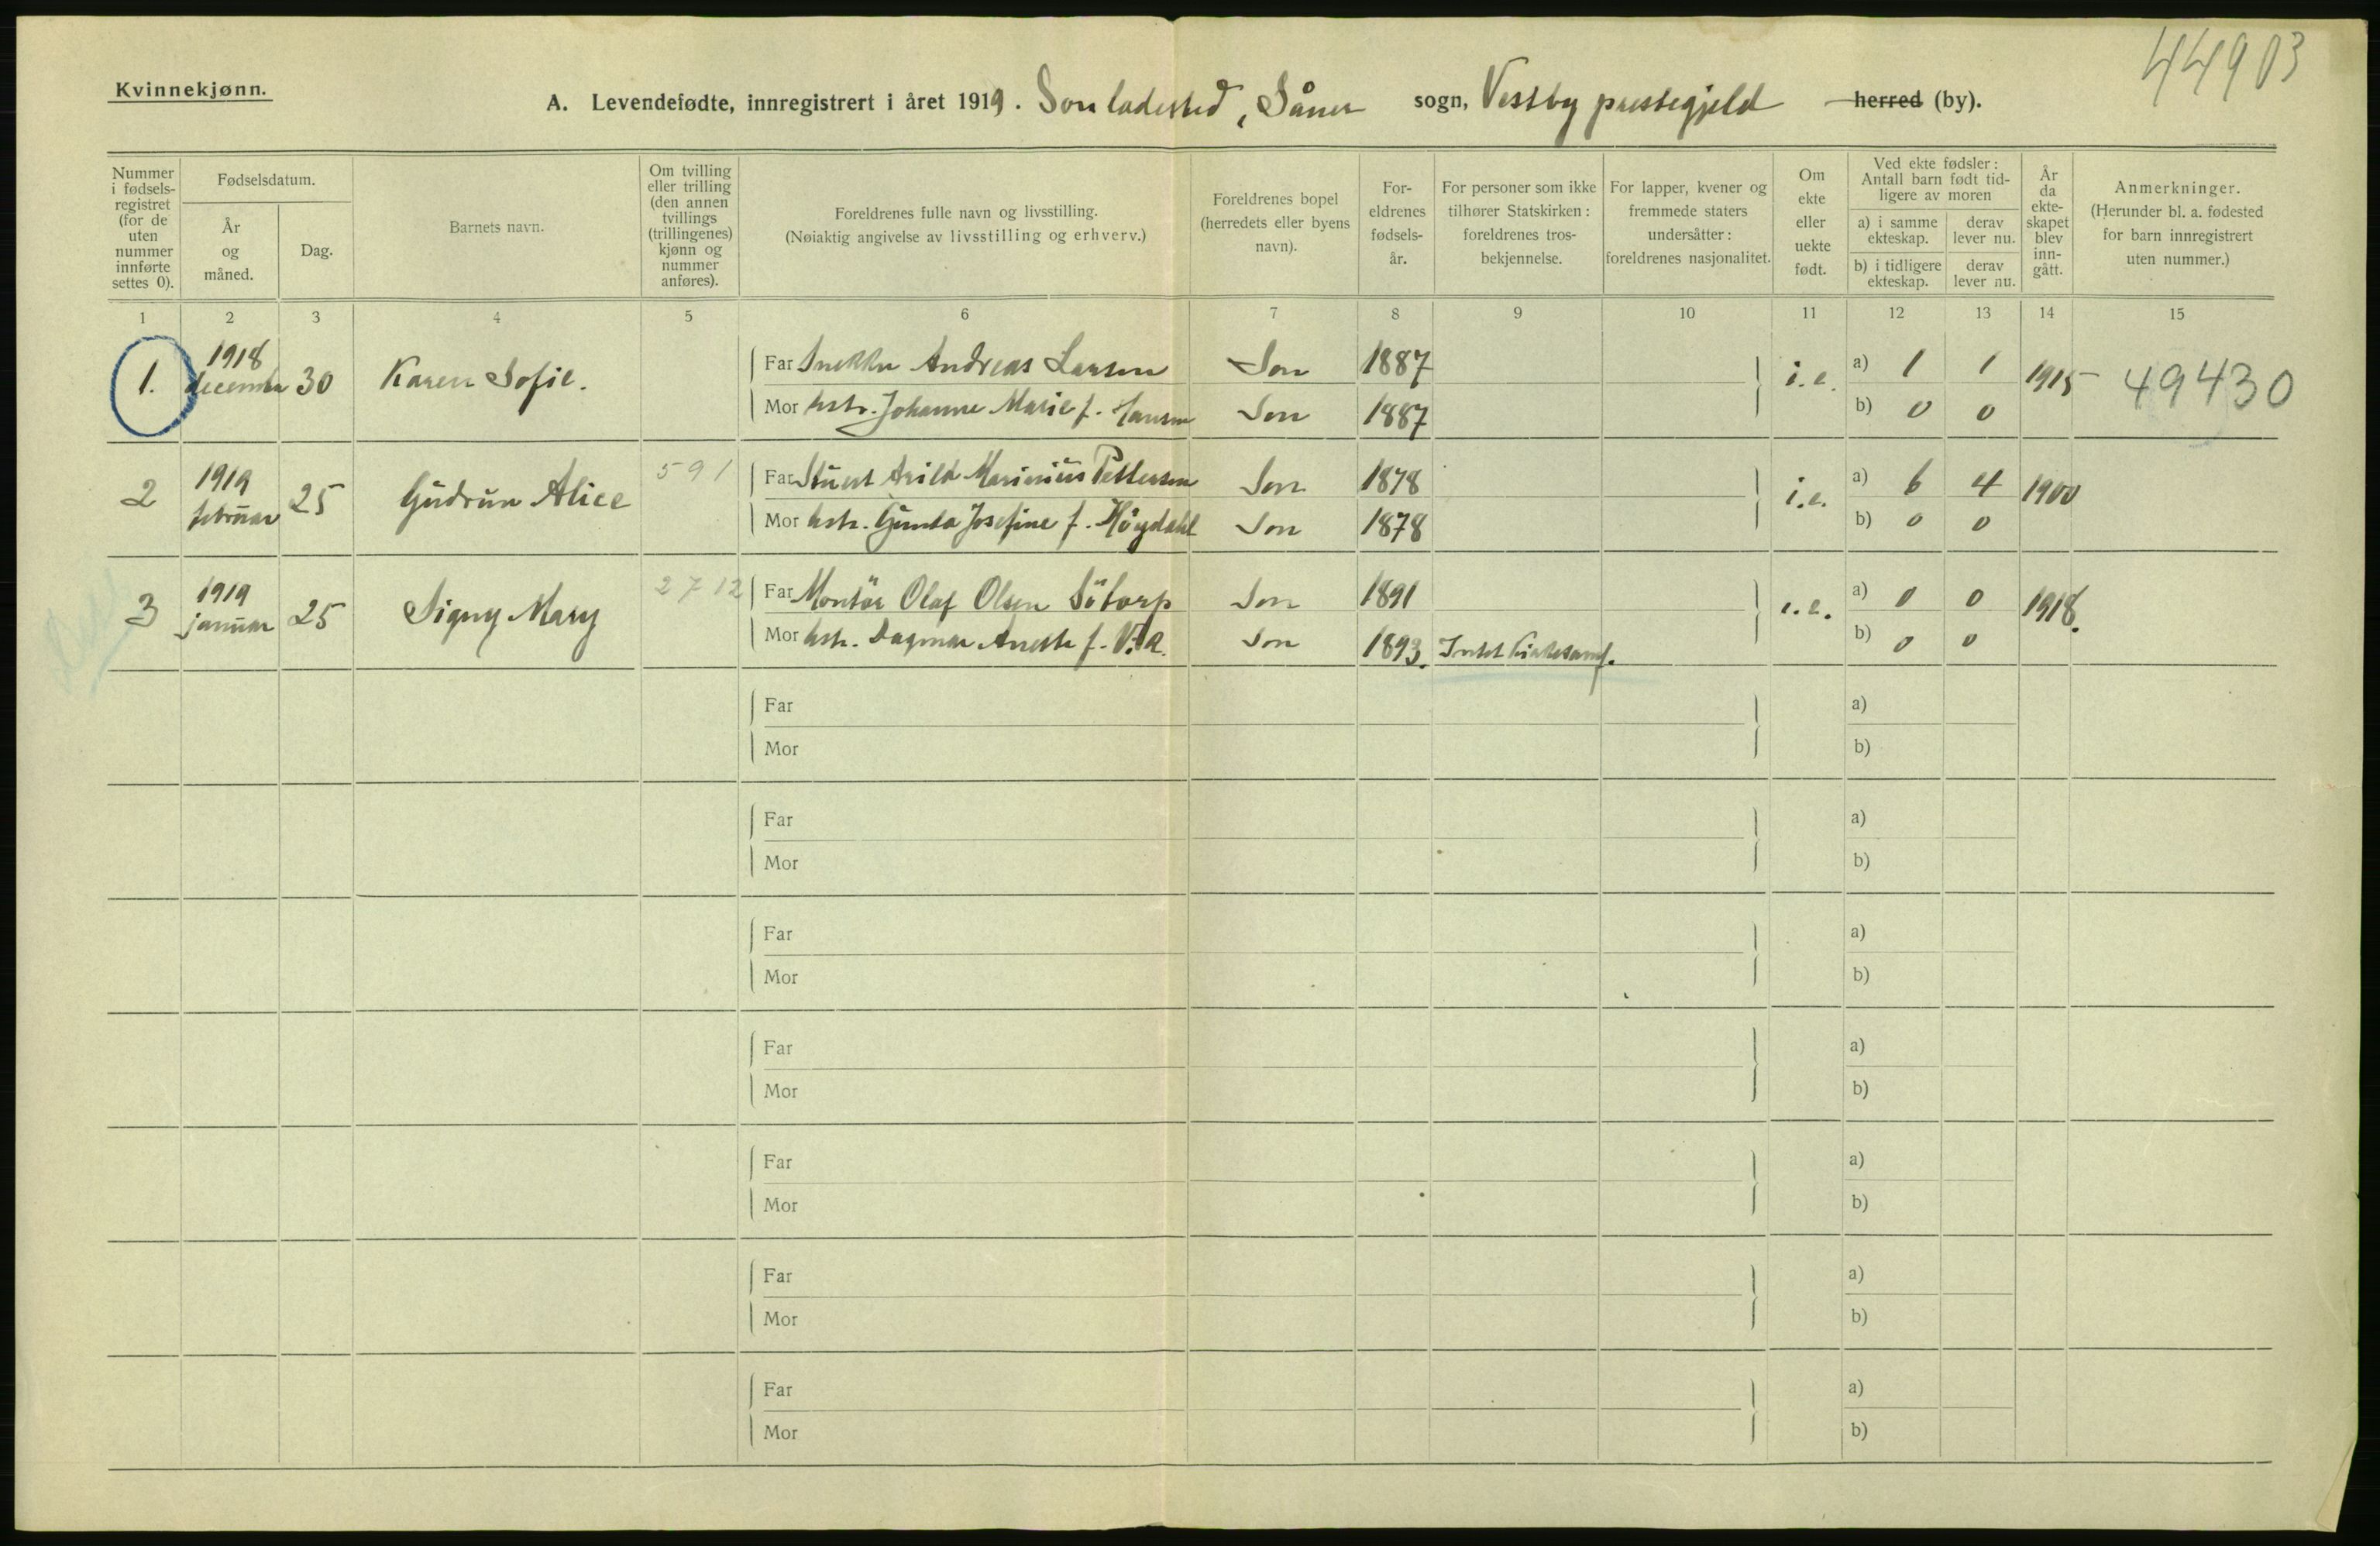 44903
Kvinnekjønn.
A. Levendefødte, innregistrert i året 1919. Son ladested, Såner sogn, Vestby prestegjeld herred (by).
Nummer i fødsels- registret (for de uten nummer innførte settes 0).
Fødselsdatum.
År og måned.
Dag.
Barnets navn.
Om tvilling eller trilling (den annen tvillings (trillingenes) kjønn og nummer anføres).
Foreldrenes fulle navn og livsstilling.
(Nøiaktig angivelse av livsstilling og erhverv.)
Foreldrenes bopel (herredets eller byens navn).
For- eldrenes fødsels- år.
For personer som ikke tilhører Statskirken: foreldrenes tros- bekjennelse.
For lapper, kvener og fremmede staters undersåtter: foreldrenes nasjonalitet.
Om ekte eller uekte født.
Ved ekte fødsler: Antall barn født tid- ligere av moren
a) i samme ekteskap.
derav lever nu.
b) i tidligere ekteskap.
derav lever nu.
År da ekte- skapet blev inn- gått.
Anmerkninger.
(Herunder bl. a. fødested for barn innregistrert uten nummer.)
1 2 3 4 5 6 7 8 9 10 11 12 13 14 15
1. 1918 december 30 Karen Sofie.
Far Snekker Andreas Larsen Son 1887 i.e. a) 1 1 1915 49430
Mor hstr. Johanne Marie f. Hansen Son 1887 b) 0 0
2 1919 februar 25 Gudrun Alice 591
Far Stuert Arild Marinius Pettersen Son 1878 i.e. a) 6 4 1900
Mor hstr. Gunda Josefine f. Höydahl Son 1878 b) 0 0
3 1919 januar 25 Signy Mary 2712
Far Montör Olaf Olsen Sötorp Son 1891 i.e. a) 0 0 1918.
Mor hstr. Dagmar Anette f. Son 1893. Intet Kirkesamf. b) 0 0
Far a)
Mor b)
Far a)
Mor b)
Far a)
Mor b)
Far a)
Mor b)
Far a)
Mor b)
Far a)
Mor b)
Far a)
Mor b)